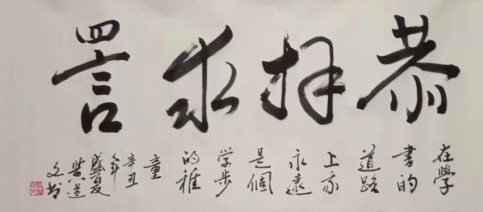 恭拜求詈
在學
書的
道路
上我
永遠
是個
学步
的稚
童
辛丑
年
盛夏
文书